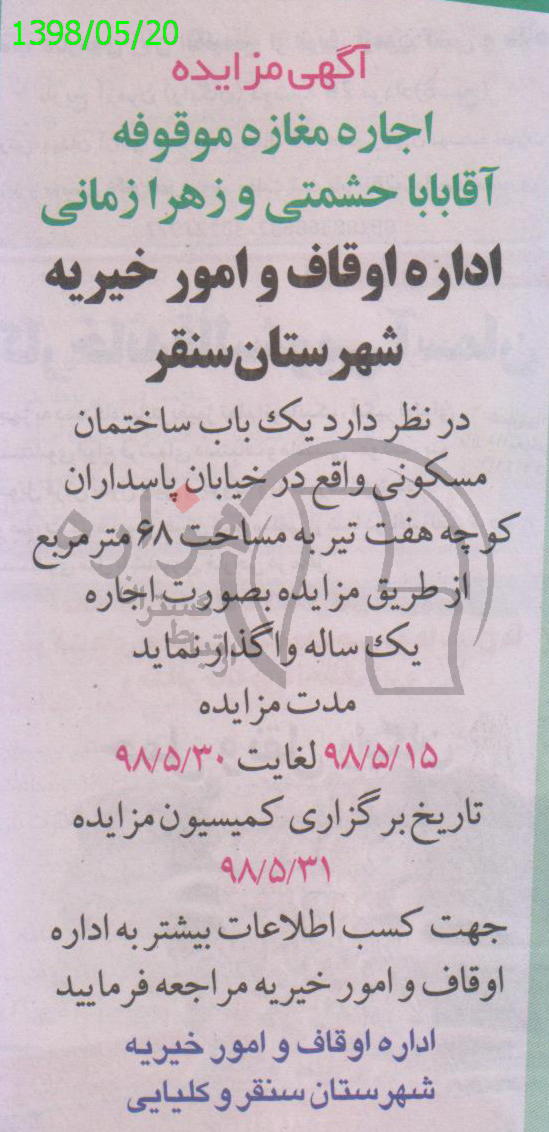 1398/05/20
آگهی مزایده
اجاره مغازه موقوفه
آقابابا حشمتی و زهرا زمانی
اداره اوقاف و امور خیریه
شهرستان سنقر
در نظر دارد یک باب ساختمان
مسکونی واقع در خیابان پاسداران
کوچه هفت تیر به مساحت ۶۸ متر مربع
از طریق مزایده بصورت اجاره
یک ساله واگذار نماید
مدت مزایده
۹۸/۵/۱۵ لغایت ۹۸/۵/۳۰
تاریخ برگزاری کمیسیون مزایده
۹۸/۵/۳۱
جهت کسب اطلاعات بیشتر به اداره
اوقاف و امور خیریه مراجعه فرمایید
اداره اوقاف و امور خیریه
شهرستان سنقر و کلیایی